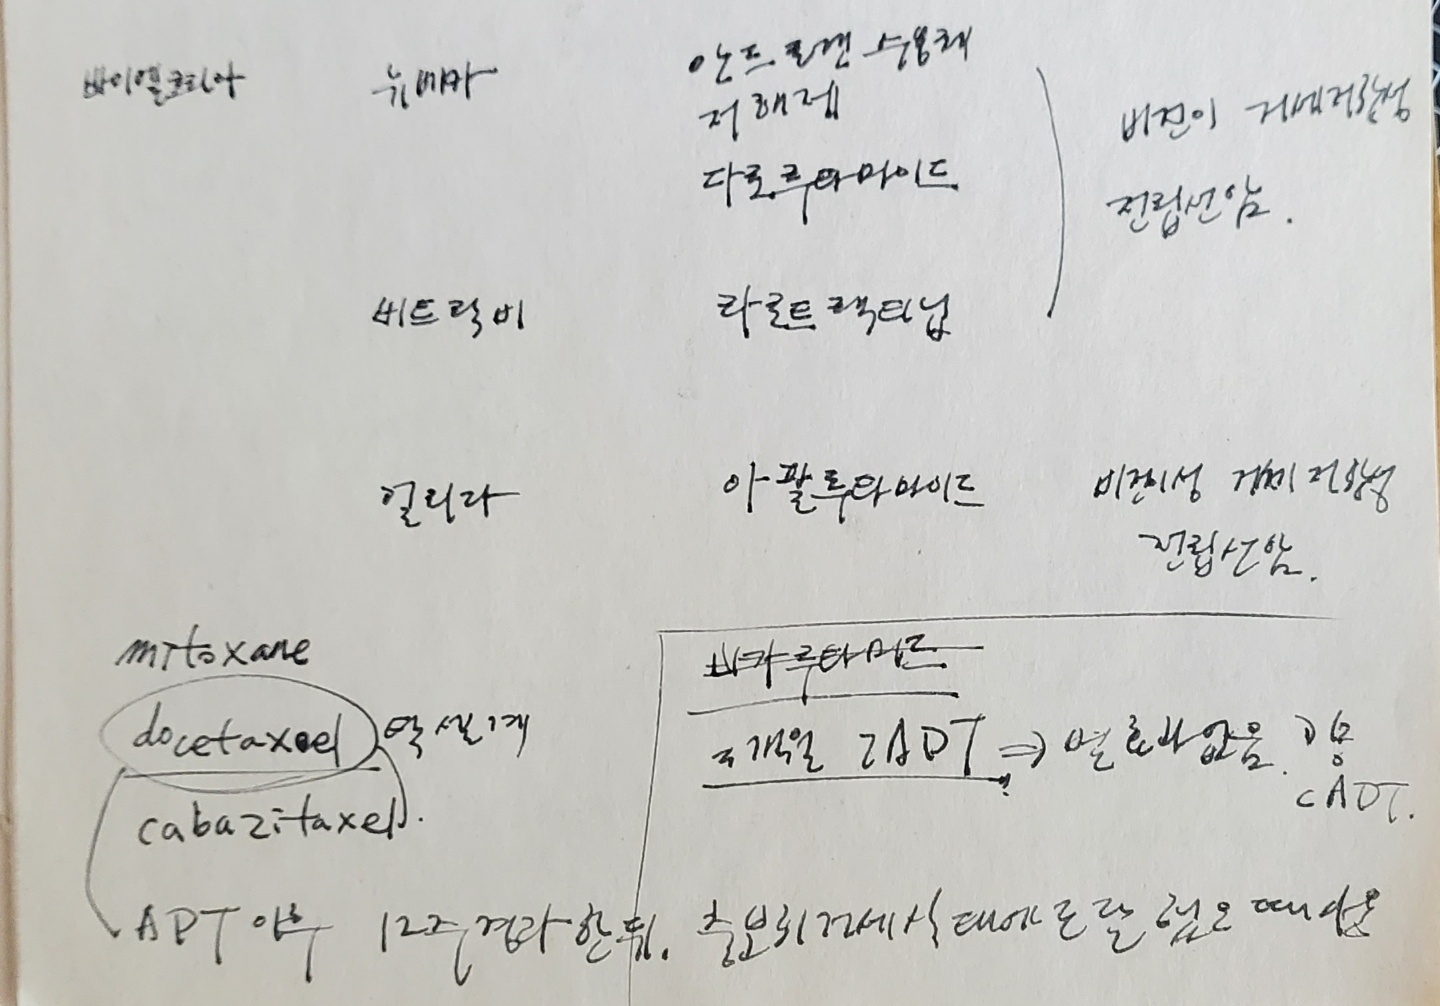 바이엘코리아 뉴베카 안드로겐 수용체
저해제
다로루타마이드
비전이 거세저항성
전립선암.
비트락비 라로트렉티닙
얼리다 아팔루타마이드 비전이성 거세저항성
전립선암.
mitoxane
docetaxoel 탁셀계
cabazitaxel.
비카루타미드
개월 ADT ⇒ 별효과없음.
cADT.
ADT 이후 12주 경과한 뒤. 충분히 거세식태에 도달